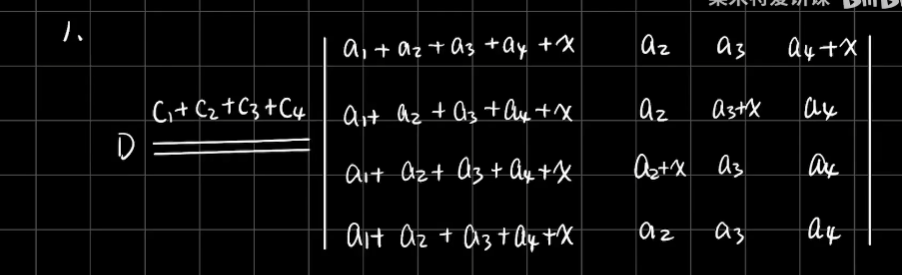 1.
a₁+a₂+a₃+a₄+x a₂ a₃ a₄+x
C₁+C₂+C₃+C₄
a₁+a₂+a₃+a₄+x a₂ a₃+x a₄
D
a₁+a₂+a₃+a₄+x a₂+x a₃ a₄
a₁+a₂+a₃+a₄+x a₂ a₃ a₄